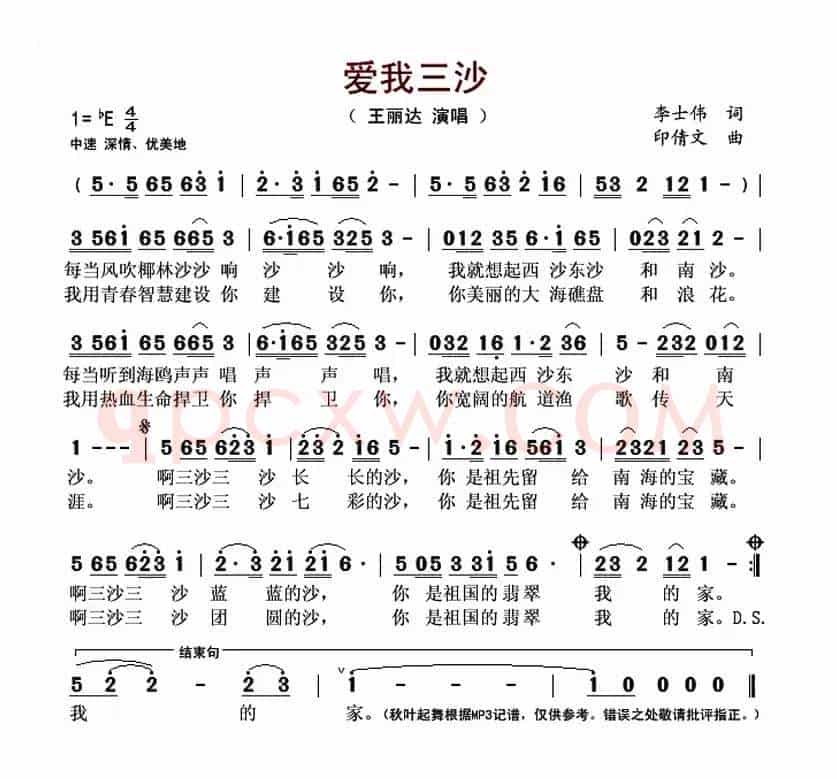 爱我三沙
1=♭E 4/4
（ 王丽达 演唱 ）
李士伟 词
中速 深情、优美地
印倩文 曲
( 5·5 65 63 1 | 2·3 165 2 - | 5·5 63 2 16 | 53 2 12 1 - ) |
3 561 65 665 3 | 6·165 325 3 - | 012 35 6·165 | 023 21 2 - |
每当风吹椰林沙沙 响 沙 沙 响， 我就想起西 沙东沙 和 南沙。
我用青春智慧建设 你 建 设 你， 你美丽的大 海礁盘 和 浪花。
3 561 65 665 3 | 6·165 325 3 - | 032 16 1·2 36 | 5 - 232 012 |
每当听到海鸥声声 唱 声 声 唱， 我就想起西 沙东 沙和 南
我用热血生命捍卫 你 捍 卫 你， 你宽阔的航 道渔 歌 传 天
1 - - - | 5 65 65 623 1 | 23 2 16 5 - | 1·2 16 561 3 | 2321 23 5 - |
沙。 啊三沙三 沙 长 长的沙， 你 是祖先留 给 南 海的宝 藏。
涯。 啊三沙三 沙 七 彩的沙， 你 是祖先留 给 南 海的宝 藏。
5 65 65 623 1 | 2·3 21 21 6· | 5 05 3 31 5 6· | 23 2 12 1 - :|
啊三沙三 沙 蓝 蓝的沙， 你 是祖国的 翡翠 我 的 家。
啊三沙三 沙 团 圆的沙， 你 是祖国的 翡翠 我 的 家。D.S.
结束句
5 2 2 - 2 3 | 1 - - - | 1 0 0 0 0 ‖
我 的 家。（秋叶起舞根据MP3记谱，仅供参考。错误之处敬请批评指正。）
qpcxw.COM